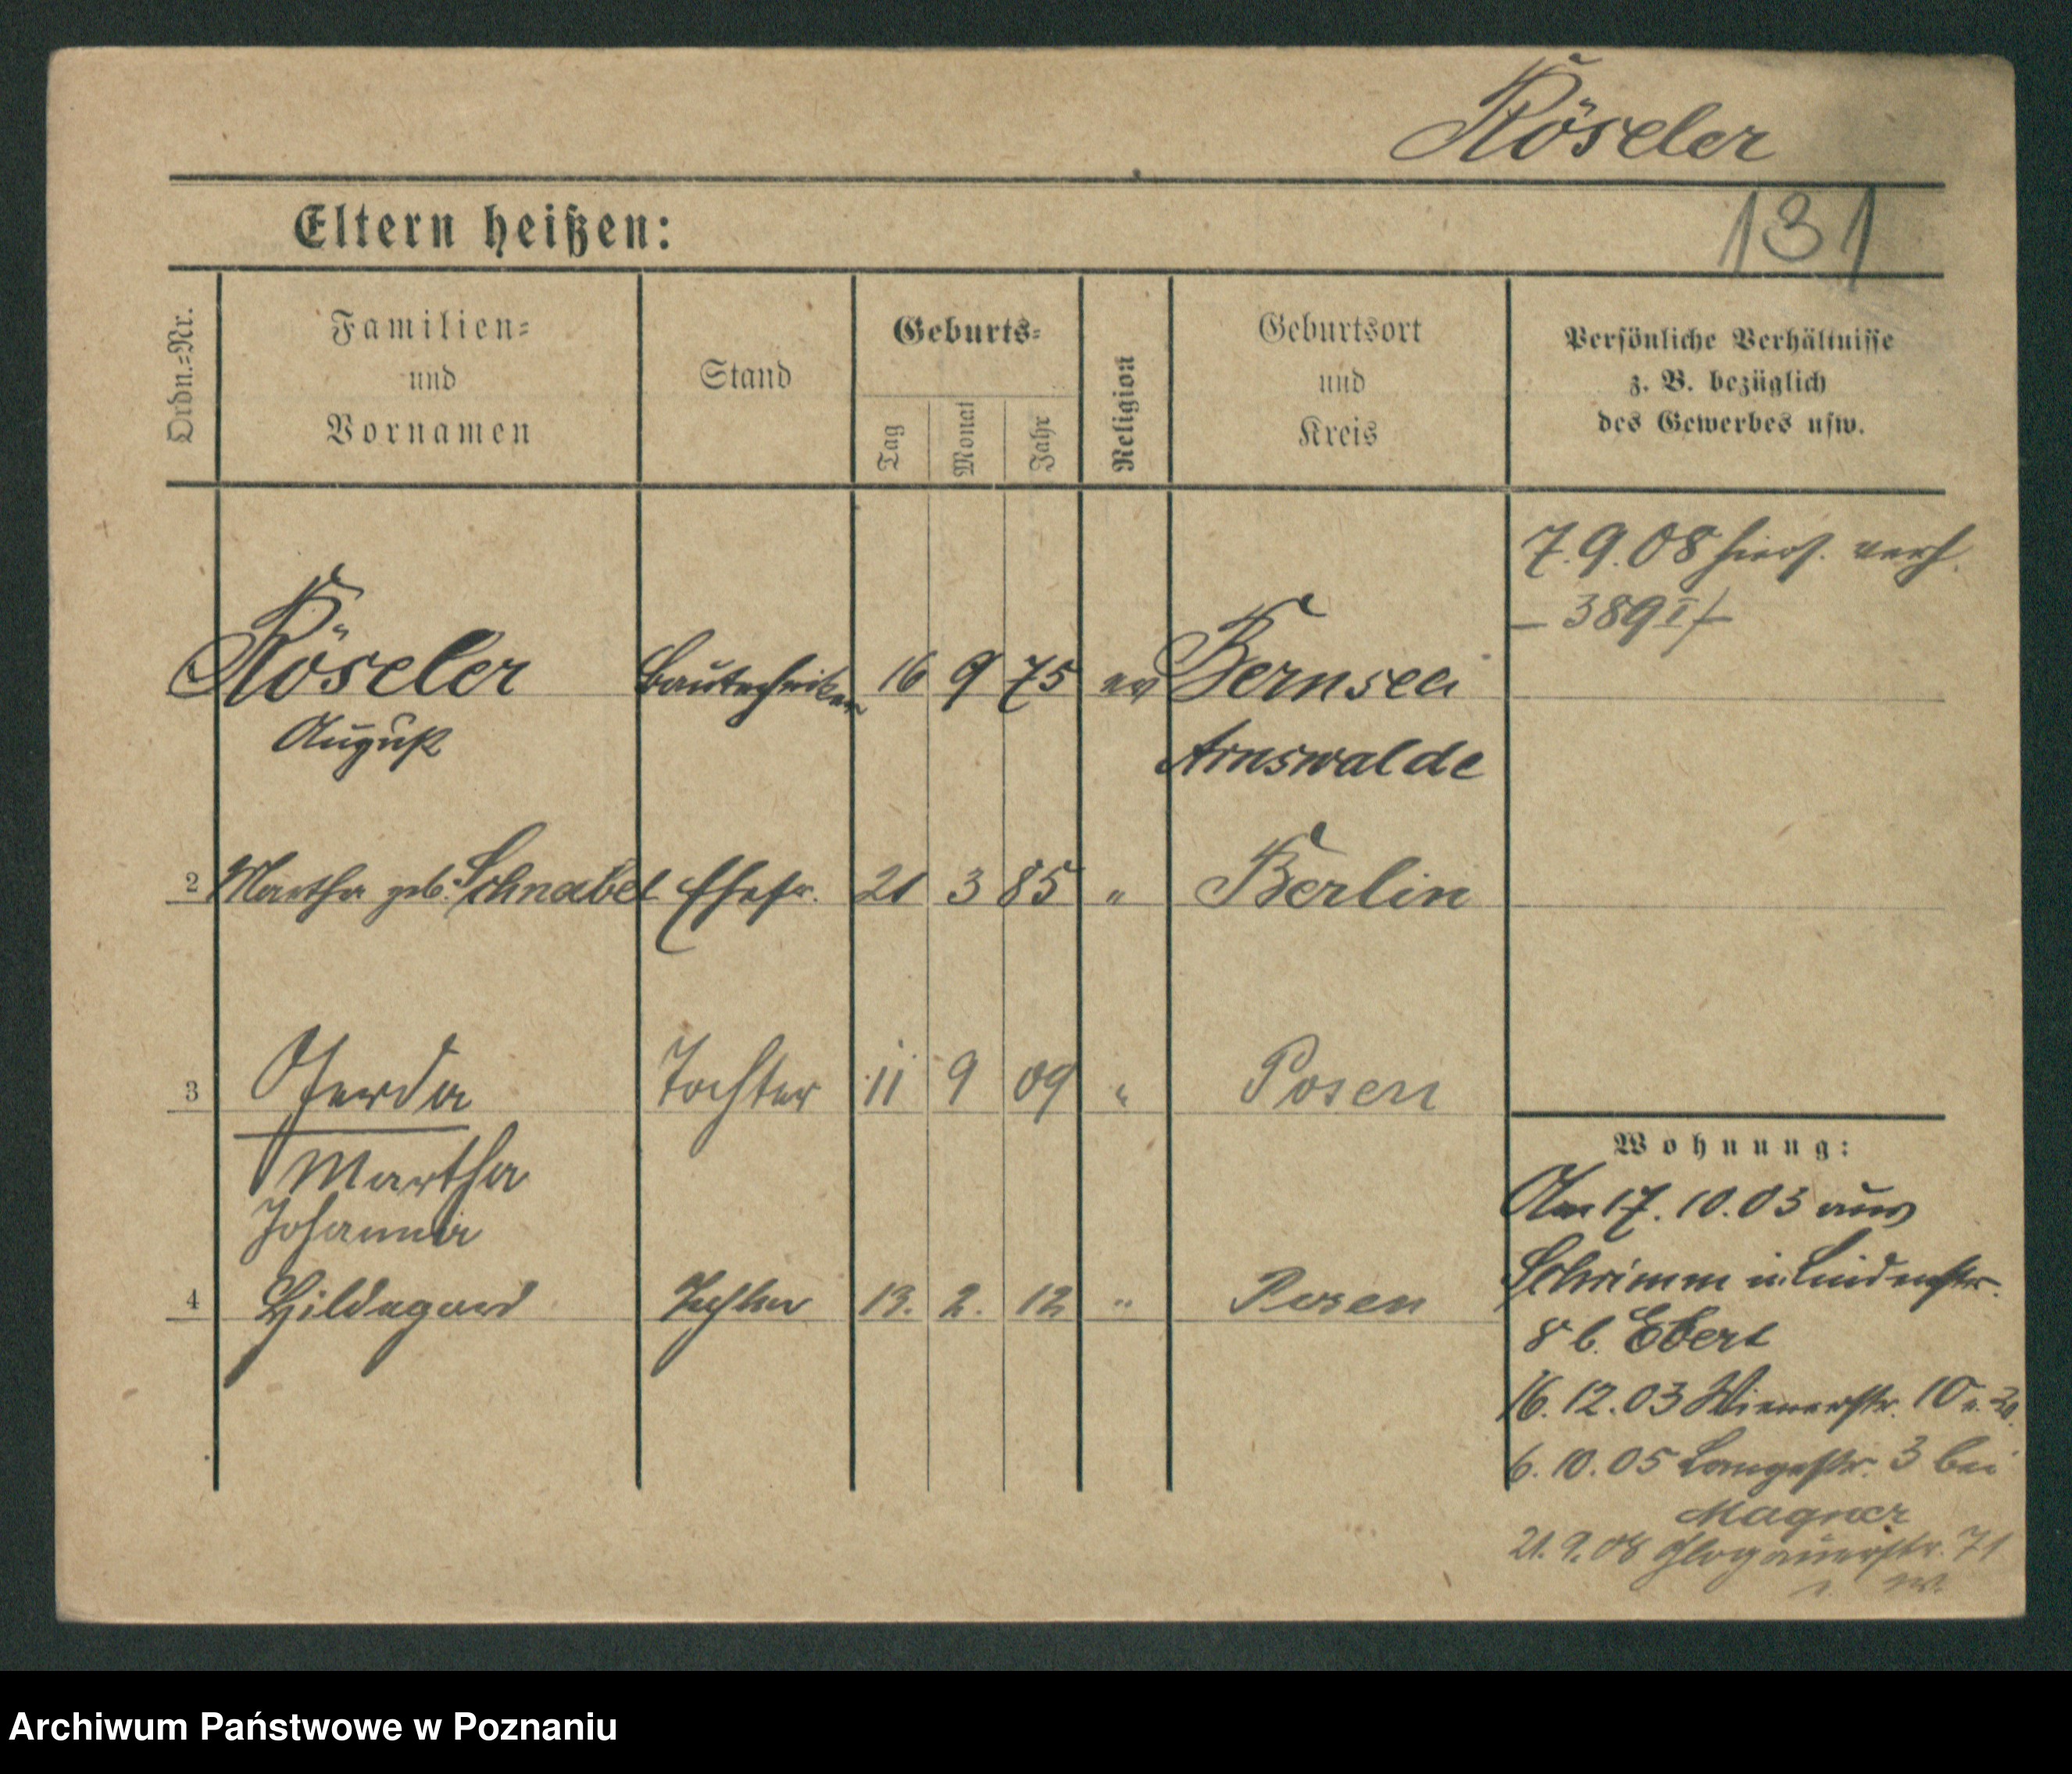 Röseler
131
Eltern heißen:
Ordn.=Nr.
Familien=
und
Vornamen
Stand
Geburts=
Tag
Monat
Jahr
Religion
Geburtsort
und
Kreis
Persönliche Verhältnisse
z. B. bezüglich
des Gewerbes usw.
7.9.08 hiers. verh.
– 389 I/–
Röseler Bautechniker 16 9 75 ev Bernsee
August Arnswalde
2 Martha geb. Schnabel Ehefr. 21 3 85 " Berlin
3 Gerda Tochter 11 9 09 " Posen
Martha
Johanna
4 Hildegard Tochter 13. 2. 12 " Posen
Wohnung:
Am 17. 10. 03 aus
Schrimm n. Lindenstr.
8 b. Ebert
16. 12. 03 Wienerstr. 10
6. 10. 05 Langestr. 3 bei
Wagner
21. 9. 08 Glogauerstr. 71
Archiwum Państwowe w Poznaniu